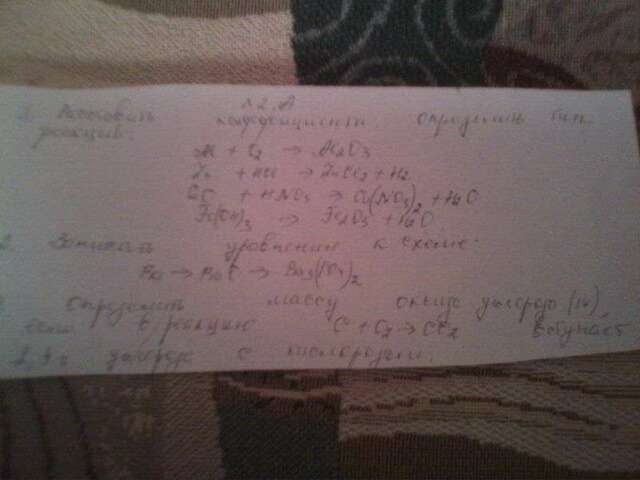 1. Расставить коэффициенты, определить тип
реакции.
Al + O2 → Al2O3
Zn + HCl → ZnCl2 + H2
+ HNO3 → (NO3)2 + H2O
Fe(OH)3 → Fe2O3 + H2O
2. Записать уравнение к схеме:
→ → Ba3(PO4)2
Определить массу оксида углерода (IV)
если в реакцию C + O2 → CO2 вступает
углерода с кислородом.